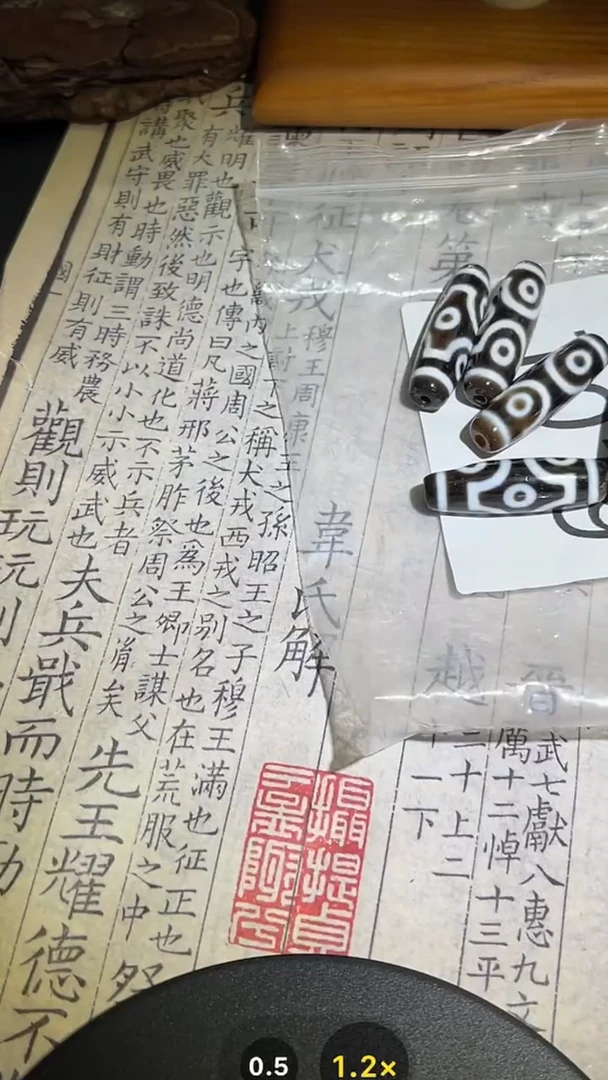 武七獻八惠九文
厲十二悼十三平
晉
三十上二
越
十一下
韋氏解
征犬戎
穆王周康王之孫昭王之子穆王滿也征正也
上討下之稱犬戎西戎之别名也在荒服之中
祭
内之國周公之後也為王卿士謀父
字也傳曰凡蔣邢茅胙祭周公之胤矣
先王耀德不
兵
耀明也觀示也明德尚道化也不示兵者
有大罪惡然後致誅不以小小示威武也
夫兵戢而時動
聚也威畏也時動謂三時務農
講武守則有財征則有威
觀則玩玩則
0.5
1.2×